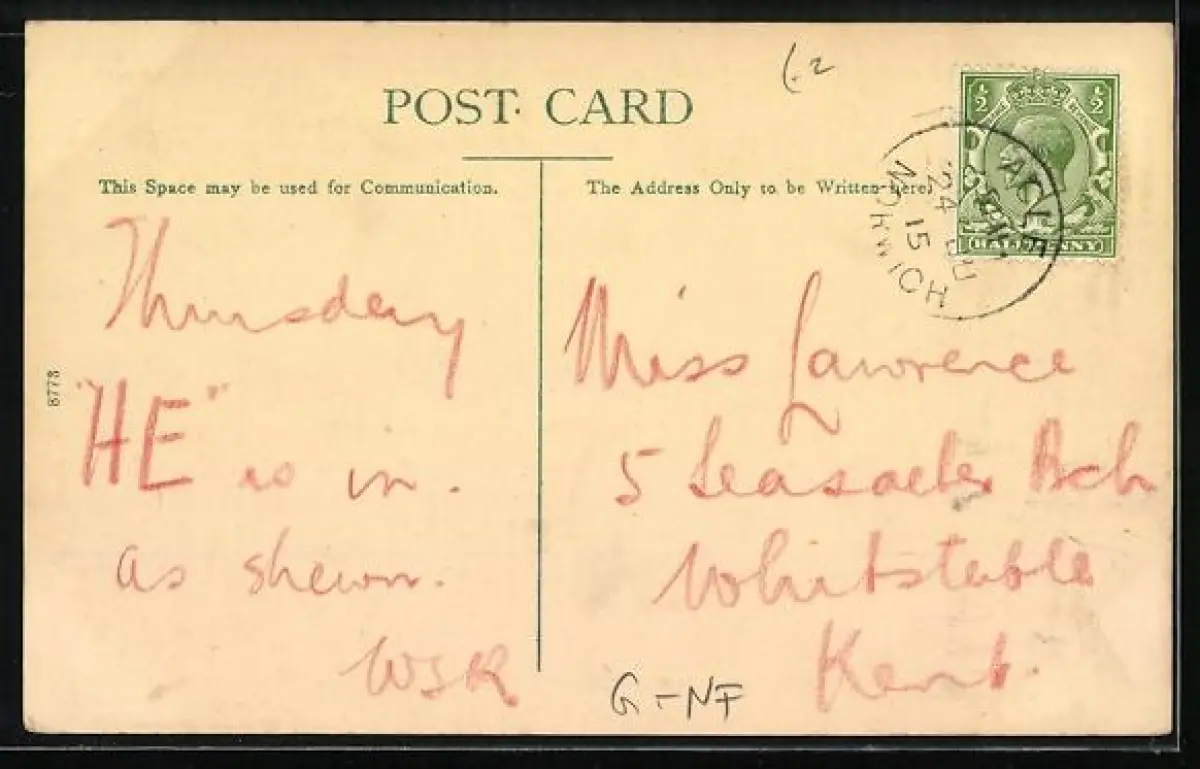 POST CARD
This Space may be used for Communication.
The Address Only to be Written here.
½ ½
HALFPENNY
ACLE
24
15
NORWICH
Thursday
"HE" is in.
as shewn.
WSR
Miss Lawrence
5 Seasalter Bch
Whitstable
Kent.
8773
G-NF